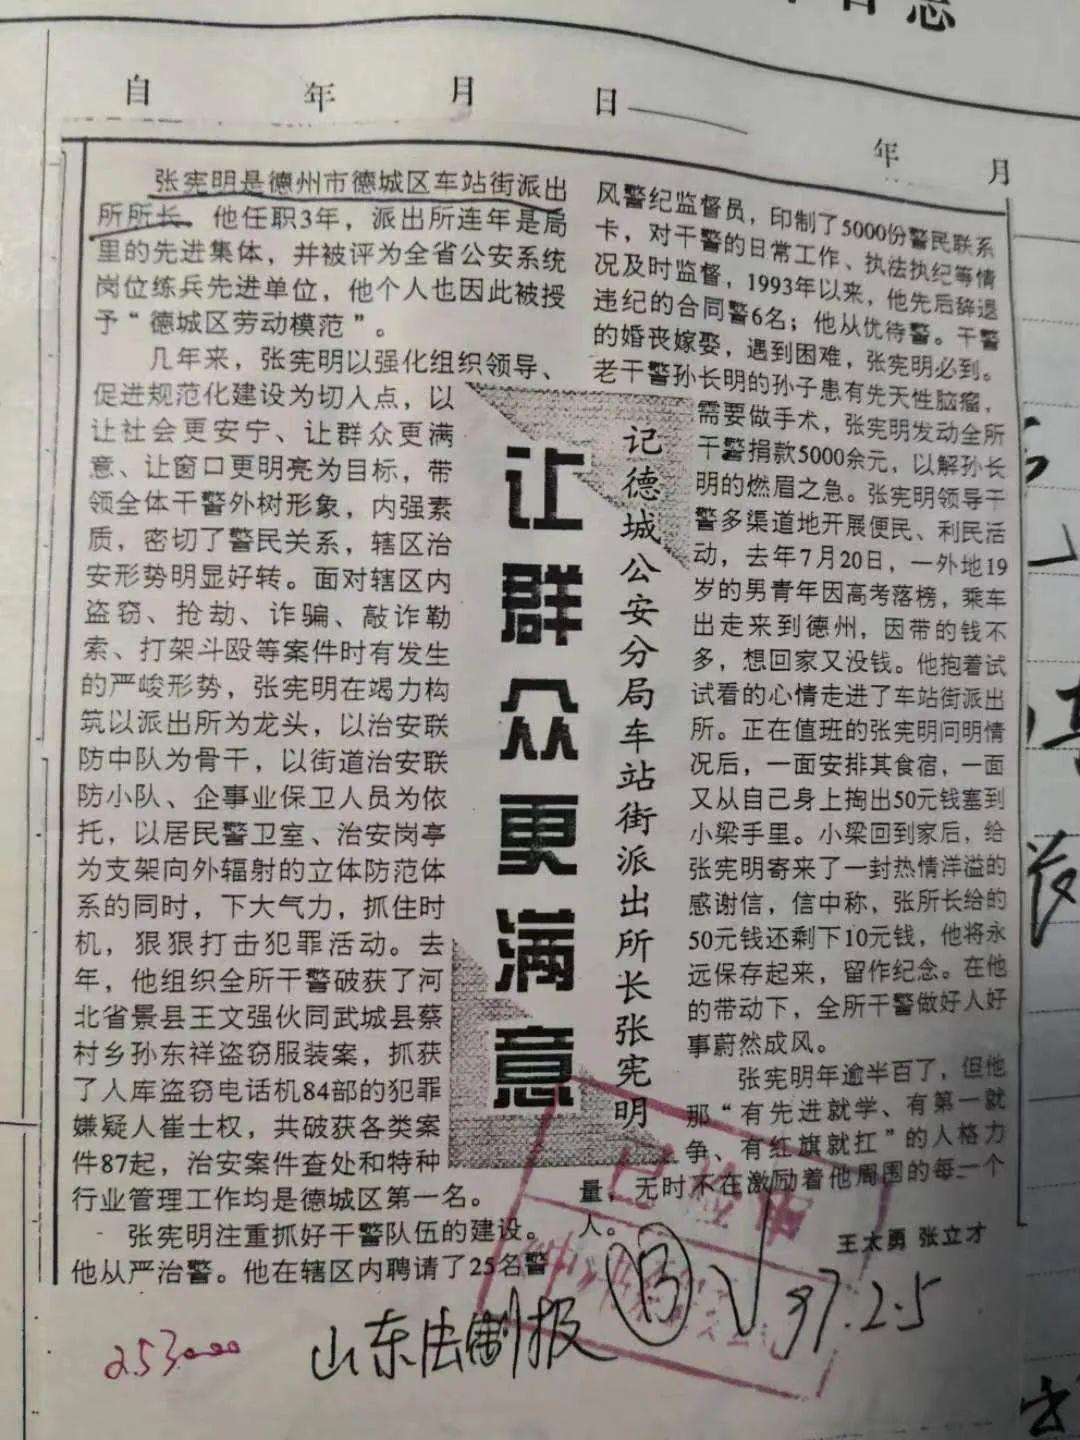 自 年 月 日
年 月
张宪明是德州市德城区车站街派出
所所长。他任职3年，派出所连年是局
里的先进集体，并被评为全省公安系统
岗位练兵先进单位，他个人也因此被授
予“德城区劳动模范”。
几年来，张宪明以强化组织领导、
促进规范化建设为切入点，以
让社会更安宁、让群众更满
意、让窗口更明亮为目标，带
领全体干警外树形象，内强素
质，密切了警民关系，辖区治
安形势明显好转。面对辖区内
盗窃、抢劫、诈骗、敲诈勒
索、打架斗殴等案件时有发生
的严峻形势，张宪明在竭力构
筑以派出所为龙头，以治安联
防中队为骨干，以街道治安联
防小队、企事业保卫人员为依
托，以居民警卫室、治安岗亭
为支架向外辐射的立体防范体
系的同时，下大气力，抓住时
机，狠狠打击犯罪活动。去
年，他组织全所干警破获了河
北省景县王文强伙同武城县蔡
村乡孙东祥盗窃服装案，抓获
了入库盗窃电话机84部的犯罪
嫌疑人崔士权，共破获各类案
件87起，治安案件查处和特种
行业管理工作均是德城区第一名。
张宪明注重抓好干警队伍的建设。
他从严治警。他在辖区内聘请了25名警
让群众更满意
记德城公安分局车站街派出所长张宪明
风警纪监督员，印制了5000份警民联系
卡，对干警的日常工作、执法执纪等情
况及时监督，1993年以来，他先后辞退
违纪的合同警6名；他从优待警。干警
的婚丧嫁娶，遇到困难，张宪明必到。
老干警孙长明的孙子患有先天性脑瘤，
需要做手术，张宪明发动全所
干警捐款5000余元，以解孙长
明的燃眉之急。张宪明领导干
警多渠道地开展便民、利民活
动，去年7月20日，一外地19
岁的男青年因高考落榜，乘车
出走来到德州，因带的钱不
多，想回家又没钱。他抱着试
试看的心情走进了车站街派出
所。正在值班的张宪明问明情
况后，一面安排其食宿，一面
又从自己身上掏出50元钱塞到
小梁手里。小梁回到家后，给
张宪明寄来了一封热情洋溢的
感谢信，信中称，张所长给的
50元钱还剩下10元钱，他将永
远保存起来，留作纪念。在他
的带动下，全所干警做好人好
事蔚然成风。
张宪明年逾半百了，但他
那“有先进就学、有第一就
争、有红旗就扛”的人格力
量，无时不在激励着他周围的每一个
人。
王太勇 张立才
253000
山东法制报
97.2.5